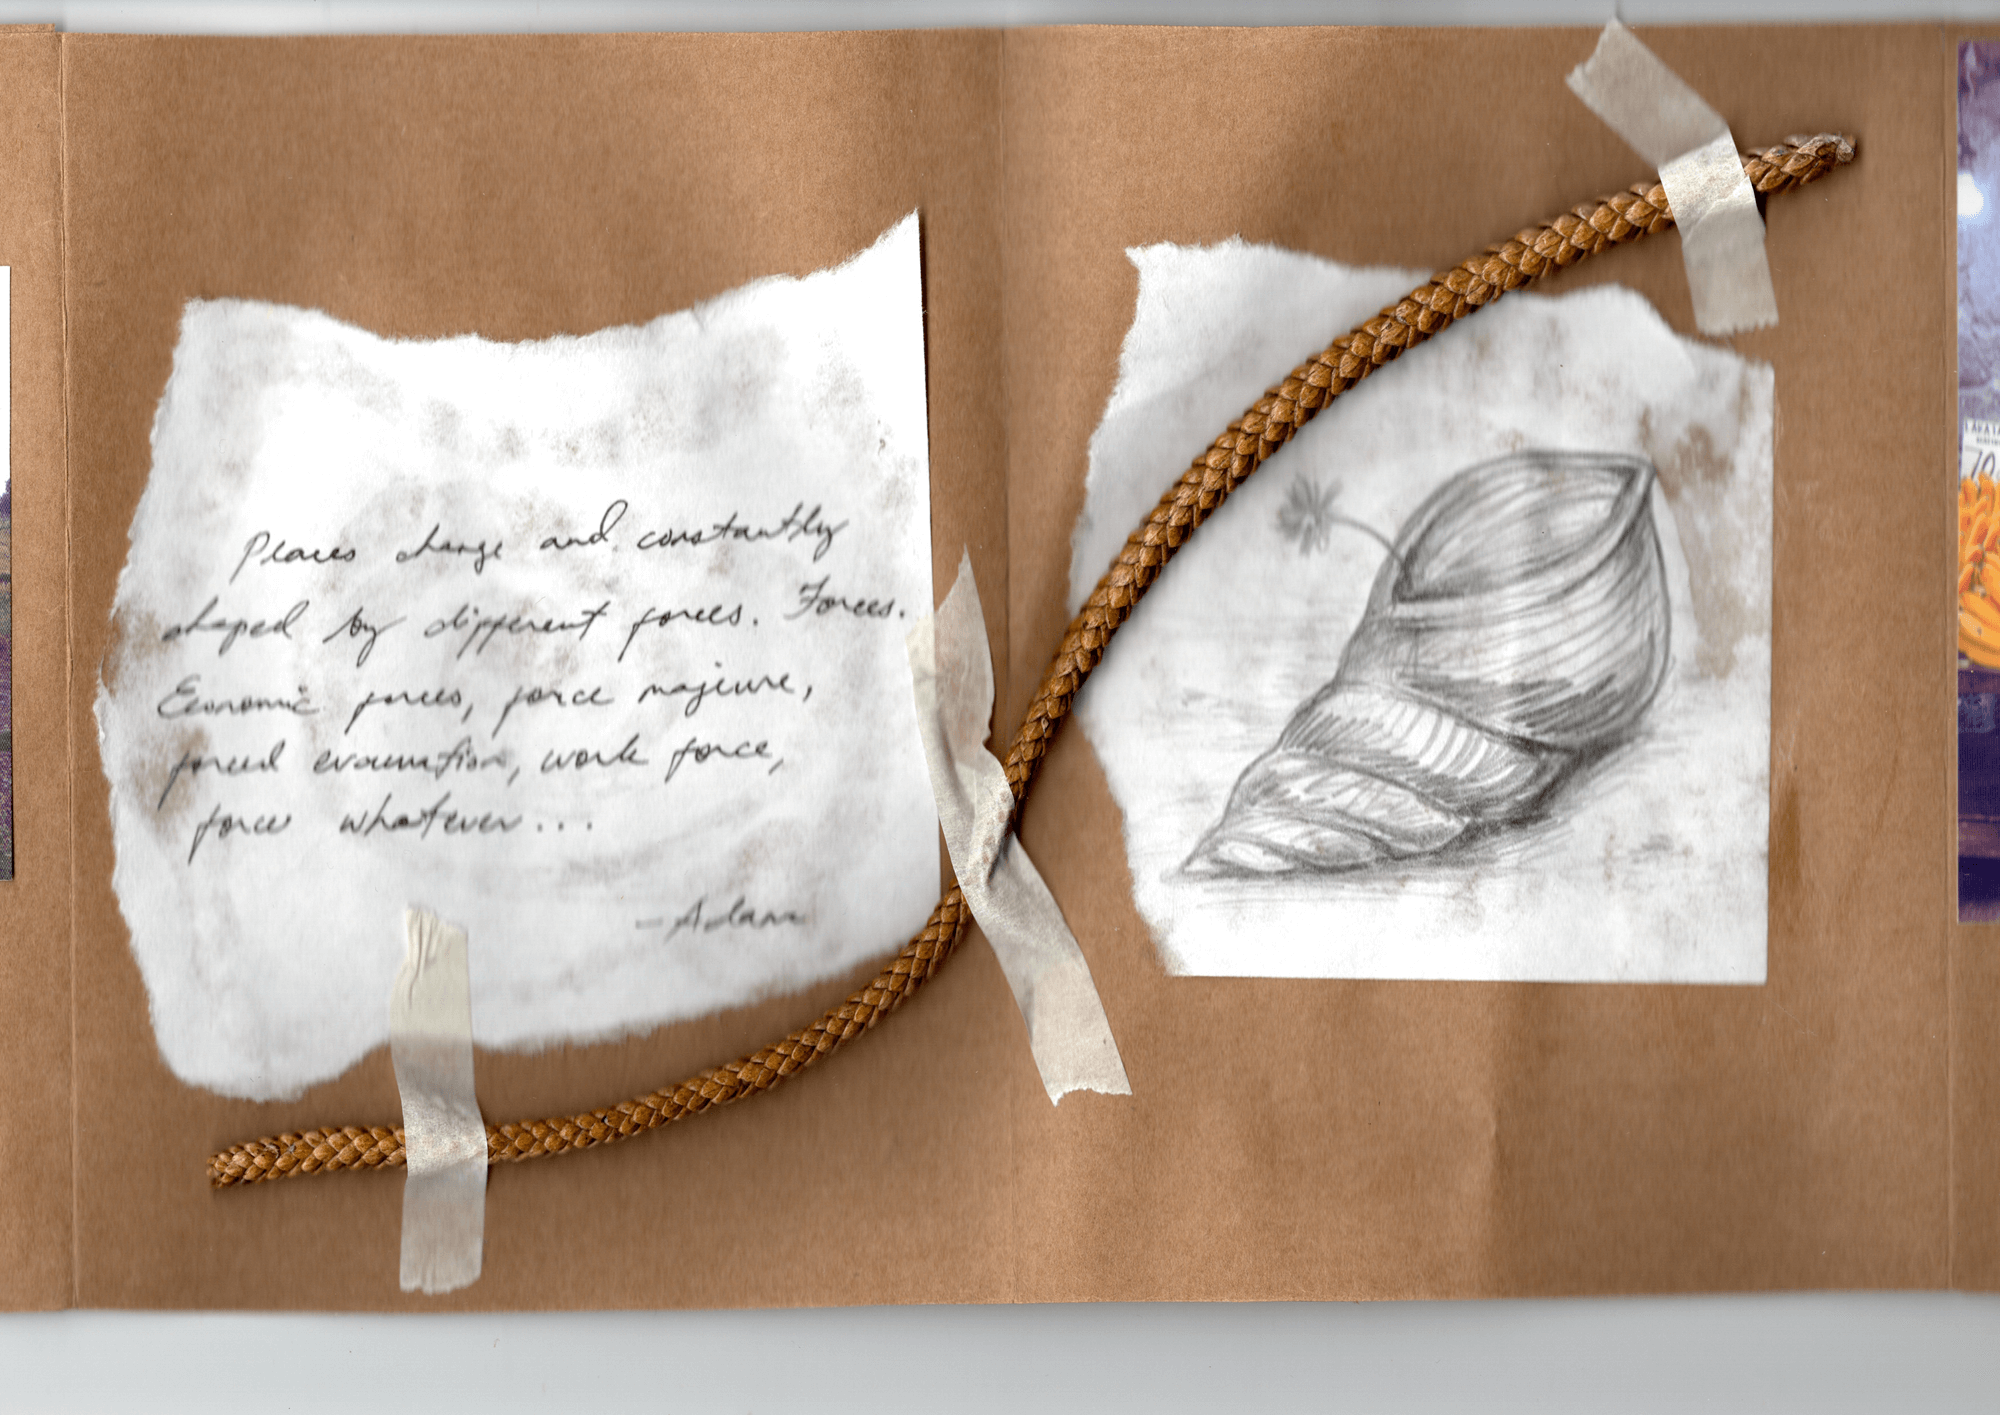 Places change and constantly
shaped by different forces. Forces.
Economic forces, force majeure,
forced evacuation, work force,
force whatever...
-Adam
70